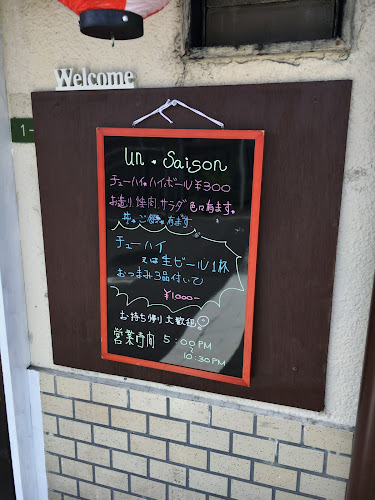 Welcome
1-
un. Saison
チューハイ.ハイボール ¥300
お造り、焼肉、サラダ 色々有ます。
有ます
チューハイ
又は生ビール1杯
おつまみ3品付いて
¥1000-
お持ち帰り大歓迎
営業時間 5:00PM
~
10:30PM